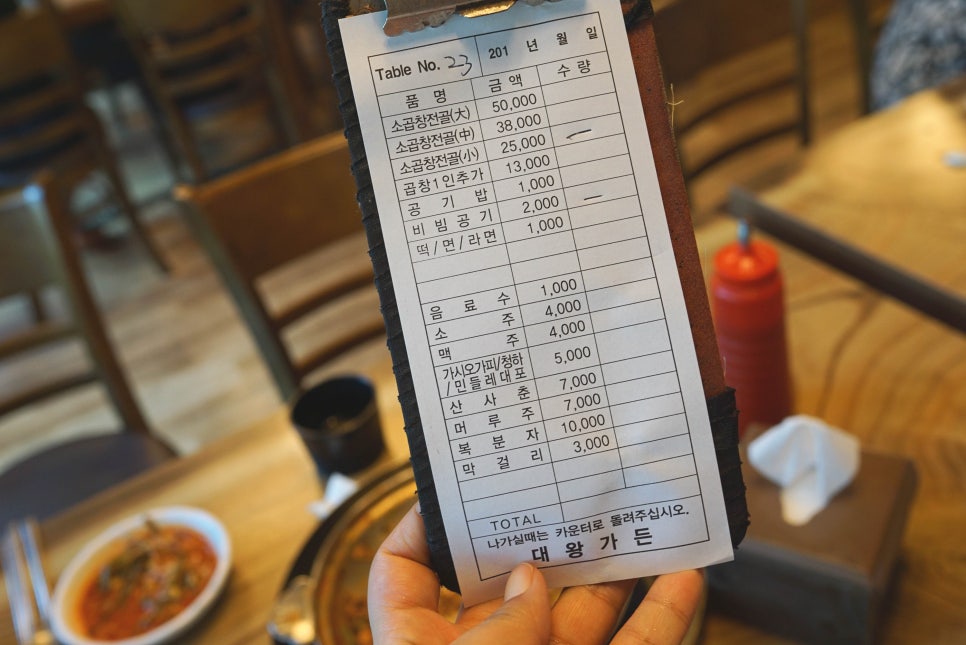 Table No. 23 201 년 월 일
품 명 금 액 수 량
소곱창전골(大) 50,000
소곱창전골(中) 38,000 —
소곱창전골(小) 25,000
곱창1인추가 13,000
공 기 밥 1,000 —
비 빔 공 기 2,000
떡/면/라면 1,000
음 료 수 1,000
소 주 4,000
맥 주 4,000
가시오가피/청하
/민들레대포 5,000
산 사 춘 7,000
머 루 주 7,000
복 분 자 10,000
막 걸 리 3,000
TOTAL
나가실때는 카운터로 돌려주십시오.
대 왕 가 든